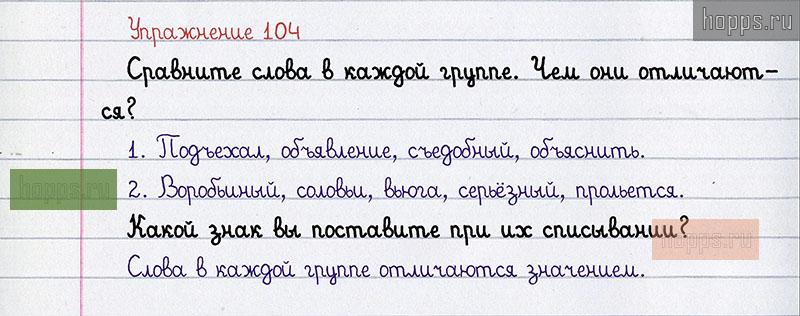 Упражнение 104
hopps.ru
Сравните слова в каждой группе. Чем они отличают-
ся?
1. Подъехал, объявление, съедобный, объяснить.
hopps.ru
2. Воробьиный, соловьи, вьюга, серьёзный, прольется.
Какой знак вы поставите при их списывании?
hopps.ru
Слова в каждой группе отличаются значением.